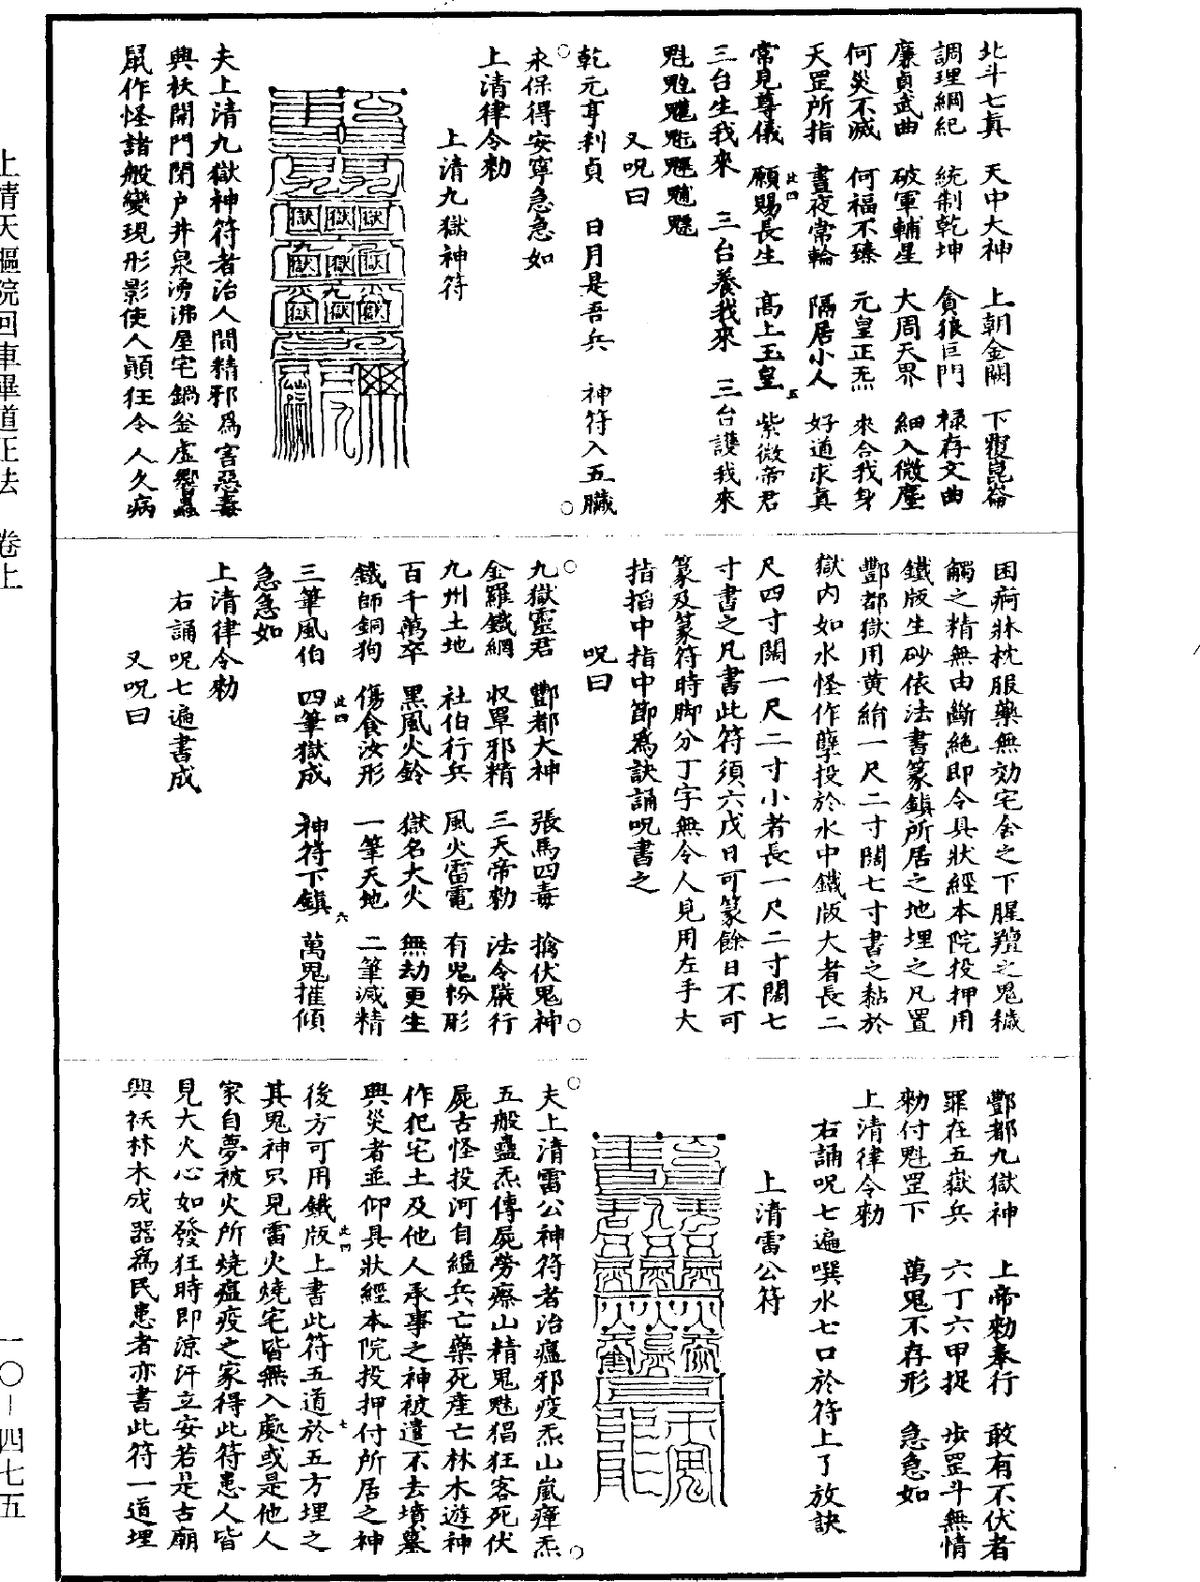 北斗七真　天中大神　上朝金闕　下覆崑崙
調理綱紀　統制乾坤　貪狼巨門　祿存文曲
廉貞武曲　破軍輔星　大周天界　細入微塵
何災不滅　何福不臻　元皇正炁　來合我身
天罡所指　晝夜常輪　隔居小人　好道求真
常見尊儀　願賜長生　高上玉皇　紫微帝君
三台生我來　三台養我來　三台護我來
魁𩲃䰢魓魒䰡魒
又呪曰
乾元亨利貞　日月是吾兵　神符入五臟
永保得安寧急急如
上清律令勅
上清九獄神符
夫上清九獄神符者治人間精邪爲害惡毒
興妖開門閉户井泉湧沸屋宅鍋釜虛響蟲
鼠作怪諸般變現形影使人顛狂令人久病
困痾牀枕服藥無効宅舍之下腥羶之鬼穢
觸之精無由斷絕即令具狀經本院投押用
鐵版生砂依法書篆鎮所居之地埋之凡置
酆都獄用黄絹一尺二寸闊七寸書之黏於
獄内如水怪作孽投於水中鐵版大者長二
尺四寸闊一尺二寸小者長一尺二寸闊七
寸書之凡書此符須六戊日可篆餘日不可
篆及篆符時脚分丁字無令人見用左手大
指搯中指中節爲訣誦呪書之
呪曰
九獄靈君　酆都大神　張馬四毒　擒伏鬼神
金羅鐵網　収罩邪精　三天帝勅　法令嚴行
九州土地　社伯行兵　風火雷電　有鬼粉形
百千萬卒　黑風火鈴　獄名大火　無劫更生
鐵師銅狗　傷食汝形　一筆天地　二筆減精
三筆風伯　四筆獄成　神符下鎮　萬鬼摧傾
急急如
上清律令勅
右誦呪七遍書成
又呪曰
酆都九獄神　上帝勅奉行　敢有不伏者
罪在五嶽兵　六丁六甲捉　步罡斗無情
勅付魁罡下　萬鬼不存形　急急如
上清律令勅
右誦呪七遍噀水七口於符上了放訣
上清雷公符
夫上清雷公神符者治瘟邪疫炁山嵐瘴炁
五般蠱炁傳屍勞瘵山精鬼魅猖狂客死伏
屍古怪投河自縊兵亡藥死產亡林木遊神
作犯宅土及他人承事之神被遣不去墳墓
興災者並仰具狀經本院投押付所居之神
後方可用鐵版上書此符五道於五方埋之
其鬼神只見雷火燒宅皆無入處或是他人
家自夢被火所燒瘟疫之家得此符患人皆
見大火心如發狂時即涼汗立安若是古廟
興妖林木成器爲民患者亦書此符一道埋
上清天樞院回車畢道正法　卷上
一〇-四七五